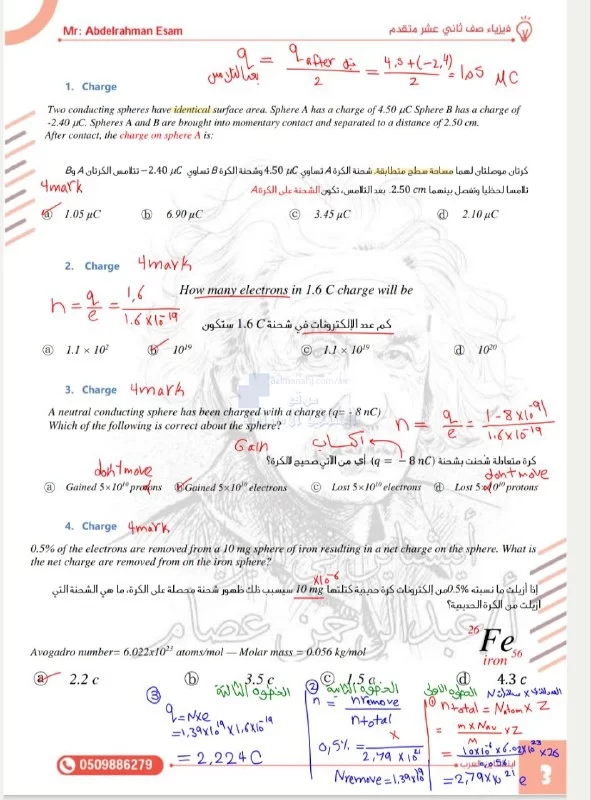 Mr: Abdelrahman Esam
فيزياء صف ثاني عشر متقدم
q بعد التلامس = q after قبل / 2 = 4,5+(-2,4) / 2 = 1.05 μC
1. Charge
Two conducting spheres have identical surface area. Sphere A has a charge of 4.50 μC Sphere B has a charge of
-2.40 μC. Spheres A and B are brought into momentary contact and separated to a distance of 2.50 cm.
After contact, the charge on sphere A is:
كرتان موصلتان لهما مساحة سطح متطابقة. شحنة الكرة A تساوي 4.50 μC وشحنة الكرة B تساوي −2.40 μC تتلامس الكرتان A وB
تلامسا لحظيا وتفصل بينهما 2.50 cm. بعد التلامس، تكون الشحنة على الكرة A
4mark
ⓐ 1.05 μC ⓑ 6.90 μC ⓒ 3.45 μC ⓓ 2.10 μC
2. Charge 4mark
How many electrons in 1.6 C charge will be
n = q/e = 1,6 / 1.6 X10^-19
كم عدد الإلكترونات في شحنة 1.6 C ستكون
ⓐ 1.1 × 10² ⓑ 10¹⁹ ⓒ 1.1 × 10¹⁹ ⓓ 10²⁰
almanahj.com/ae
3. Charge 4mark
A neutral conducting sphere has been charged with a charge (q= - 8 nC)
Which of the following is correct about the sphere?
n = q/e = |-8X10^-9| / 1.6X10^-19
Gain اكساب
كرة متعادلة شحنت بشحنة (q = − 8 nC) أي من الآتي صحيح للكرة؟
don't move
don't move
ⓐ Gained 5×10¹⁰ protons ⓑ Gained 5×10¹⁰ electrons ⓒ Lost 5×10¹⁰ electrons ⓓ Lost 5×10¹⁰ protons
4. Charge 4mark
0.5% of the electrons are removed from a 10 mg sphere of iron resulting in a net charge on the sphere. What is
the net charge are removed from on the iron sphere?
X10^-6
إذا أزيلت ما نسبته 0.5% من إلكترونات كرة حديدية كتلتها 10 mg سيسبب ذلك ظهور شحنة محصلة على الكرة، ما هي الشحنة التي
أزيلت من الكرة الحديدية؟
أ عبدالرحمن عصام
26 Fe 56
iron
Avogadro number= 6.022x10²³ atoms/mol — Molar mass = 0.056 kg/mol
ⓐ 2.2 c ⓑ 3.5 c ⓒ 1.5 c ⓓ 4.3 c
③ الخطوة الثالثة
q = Nxe
= 1,39X10^19 X 1,6X10^-19
= 2,224 C
② الخطوة الثانية
n = nremove / ntotal
0,5% = X / 2,79 X10^21
Nremove = 1,39X10^19
الخطوة الأولى
① ntotal = Natom X Z
= m X Nav / M X Z
= 10X10^-6 X 6.02X10^23 / 0,056 X 26
= 2,79X10^21 e
0509886279
3